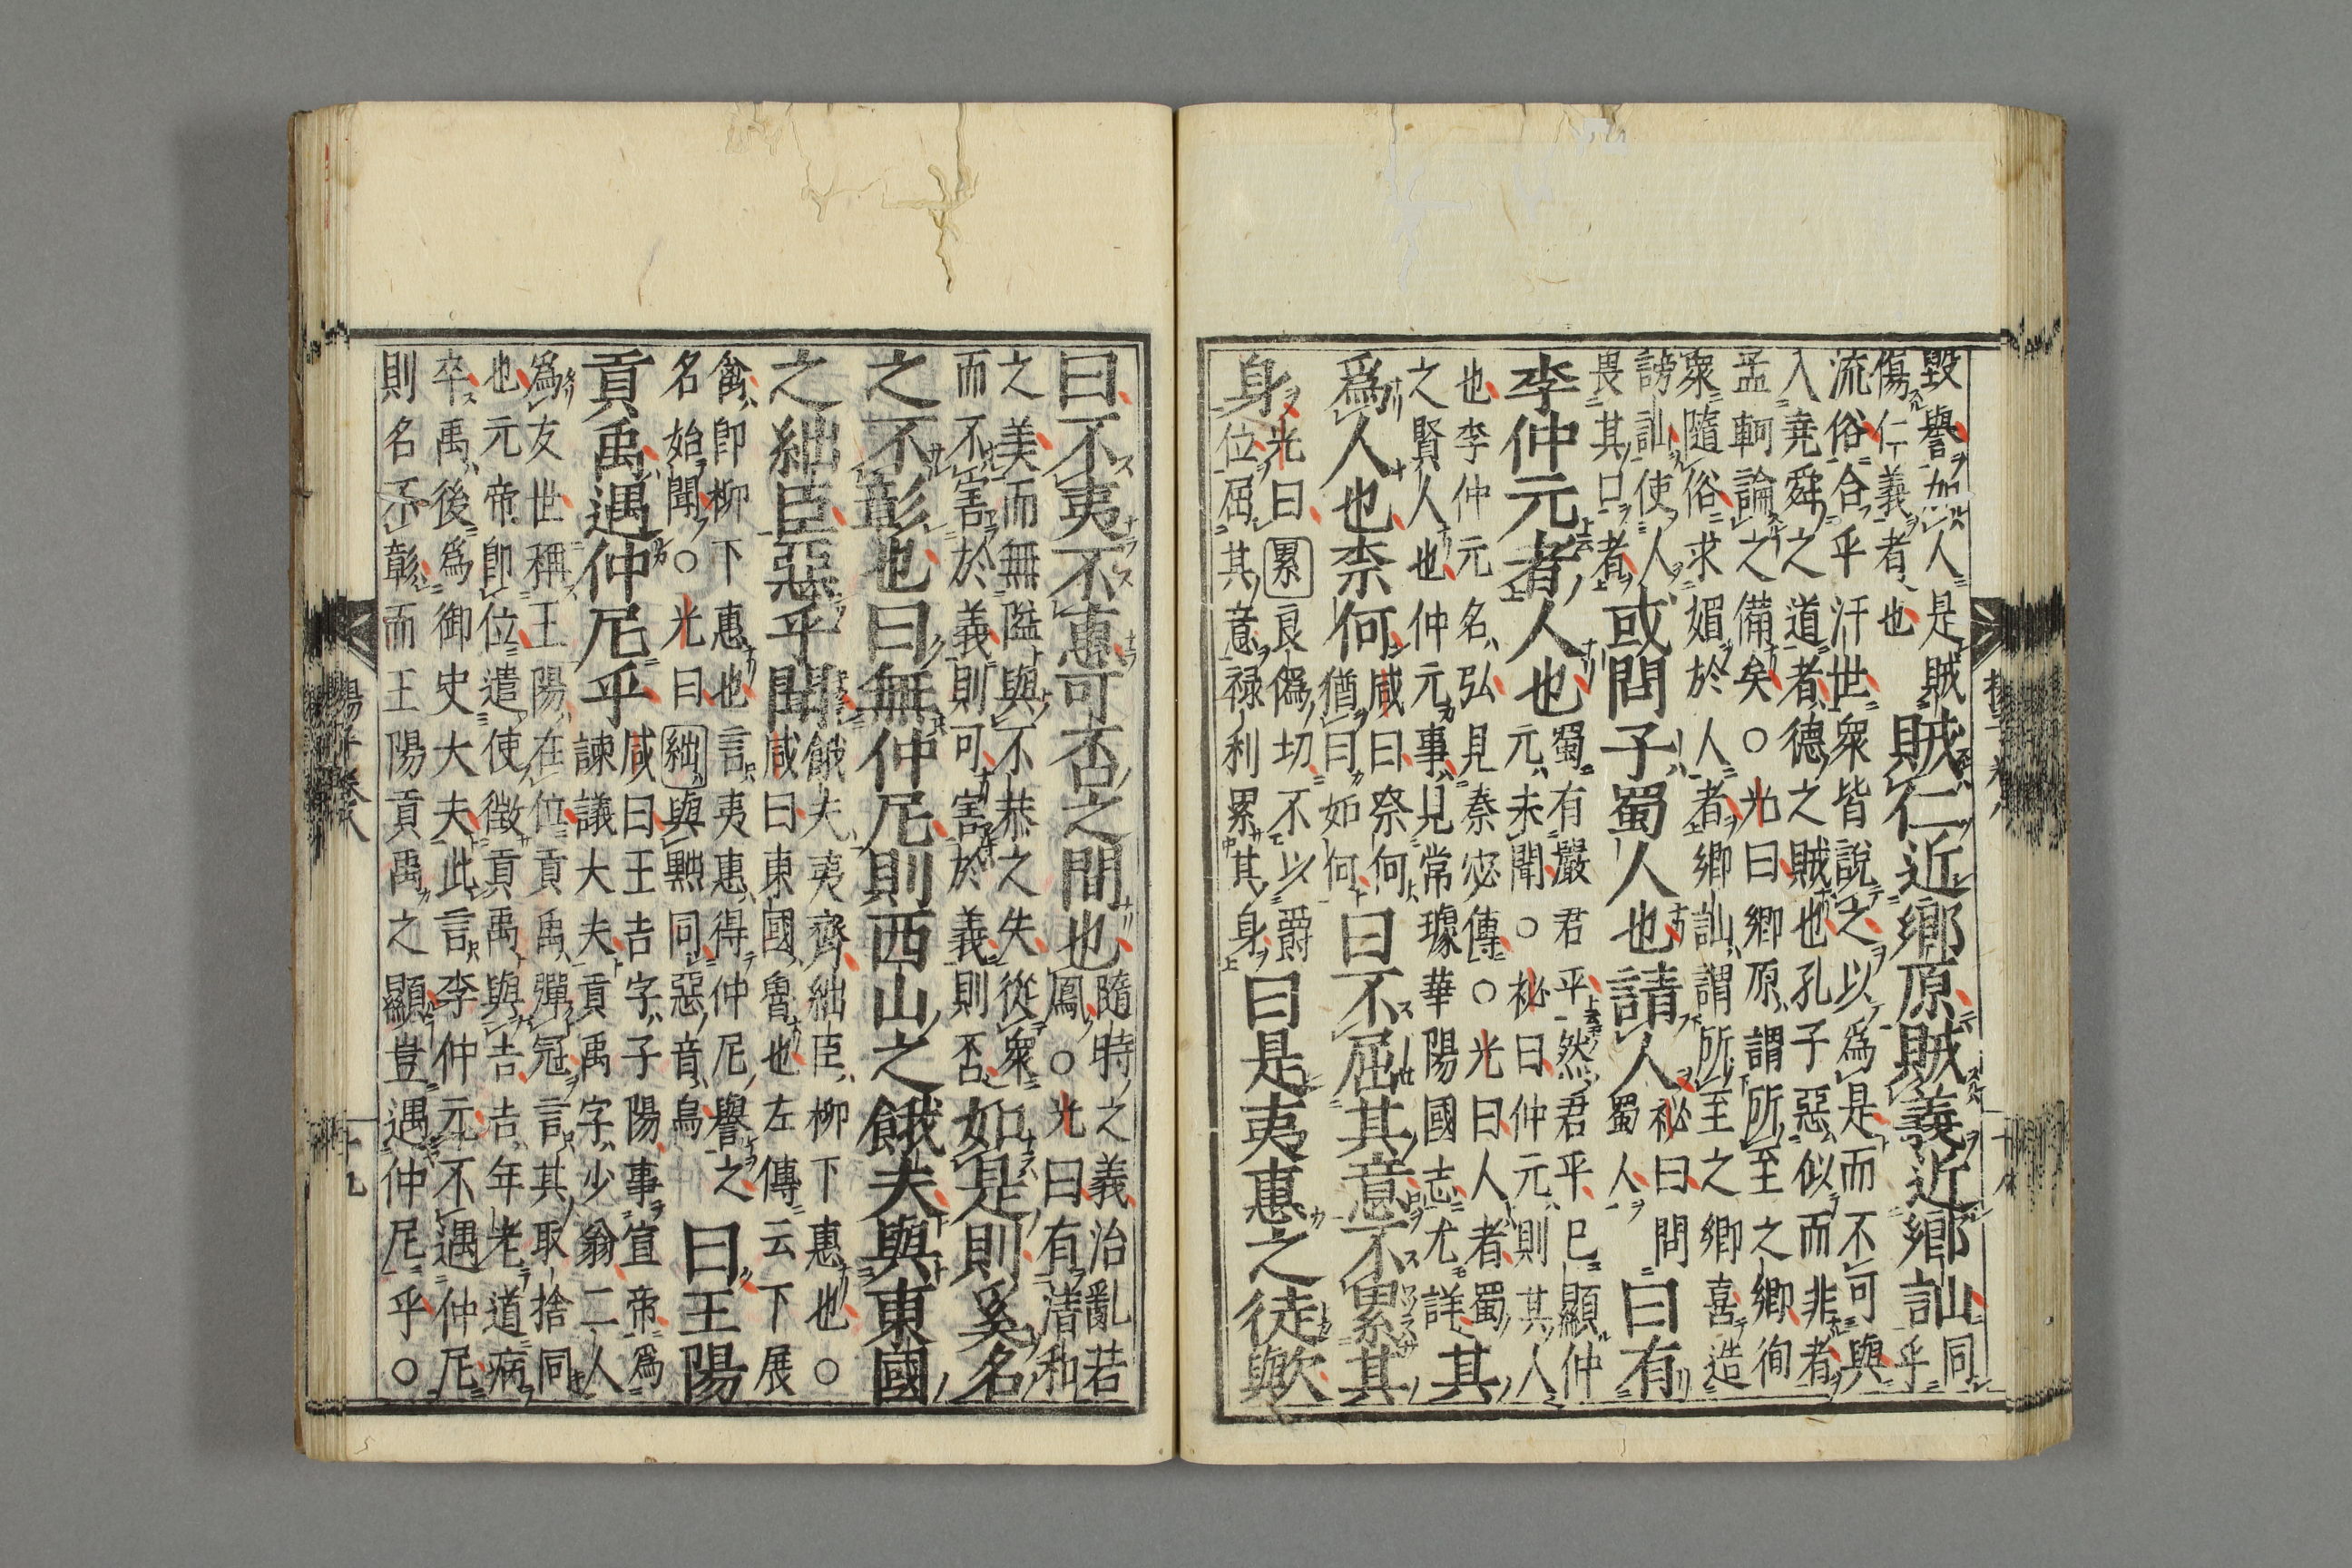 毀譽加人是賊
傷仁義者也
賊仁近鄉原賊義近鄉訕
同
乎
流俗合乎汙世衆皆說之以爲是而不可與
入堯舜之道者德之賊也孔子惡似而非者
孟軻論之備矣○光曰鄉原謂所至之鄉徇
衆隨俗求媚於人者鄉訕謂所至之鄉喜造
謗訕使人
畏其口者
或問子蜀人也請人
祕曰問
蜀人
曰有
李仲元者人也
蜀有嚴君平然君平已顯仲
元未聞○祕曰仲元則其人
也李仲元名弘見秦宓傳○光曰人者蜀
之賢人也仲元事見常璩華陽國志尤詳
其
爲人也柰何
咸曰柰何
猶曰如何
曰不屈其意不累其
身
光曰累良僞切不以爵
位屈其意祿利累其身
曰是夷惠之徒歟
曰不夷不惠可否之間也
隨時之義治亂若
鳳○光曰有渚和
之美而無隘與不恭之失從衆
而不害於義則可害於義則否
如是則奚名
之不彰也曰無仲尼則西山之餓夫與東國
之絀臣惡乎聞
餓夫夷齊絀臣柳下惠也○
咸曰東國魯也左傳云下展
禽卽柳下惠也言夷惠得仲尼譽之
名始聞○光曰絀與黜同惡音烏
曰王陽
貢禹遇仲尼乎
咸曰王吉字子陽事宣帝爲
諫議大夫貢禹字少翁二人
爲友世稱王陽在位貢禹彈冠言其取捨同
也元帝卽位遣使徵貢禹與吉吉年老道病
卒禹後爲御史大夫此言李仲元不遇仲尼
則名不彰而王陽貢禹之顯豈遇仲尼乎○
揚子卷八
十九